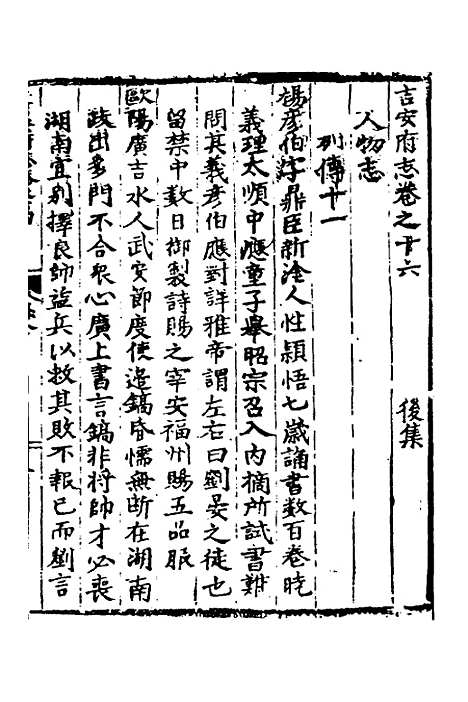 吉安府志卷之十六　後集
人物志
列傳十一
楊彥伯字鼎臣新淦人性穎悟七歲誦書数百卷曉
義理太順中應童子舉昭宗召入內摘所試書難
問其義彥伯應對詳雅帝謂左右曰劉晏之徒也
留禁中数日御製詩賜之宰安福州賜五品服
歐陽廣吉水人武安節度使邉鎬昏懦無断在湖南
政出多門不合衆心廣上書言鎬非将帥才必喪
湖南宜别擇良師益兵以救其敗不報已而劉言